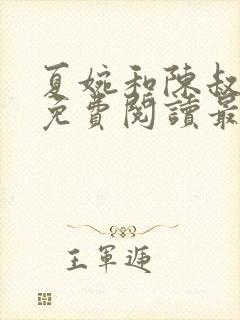 夏婉和陳叔
免費閱讀最
王軍遞